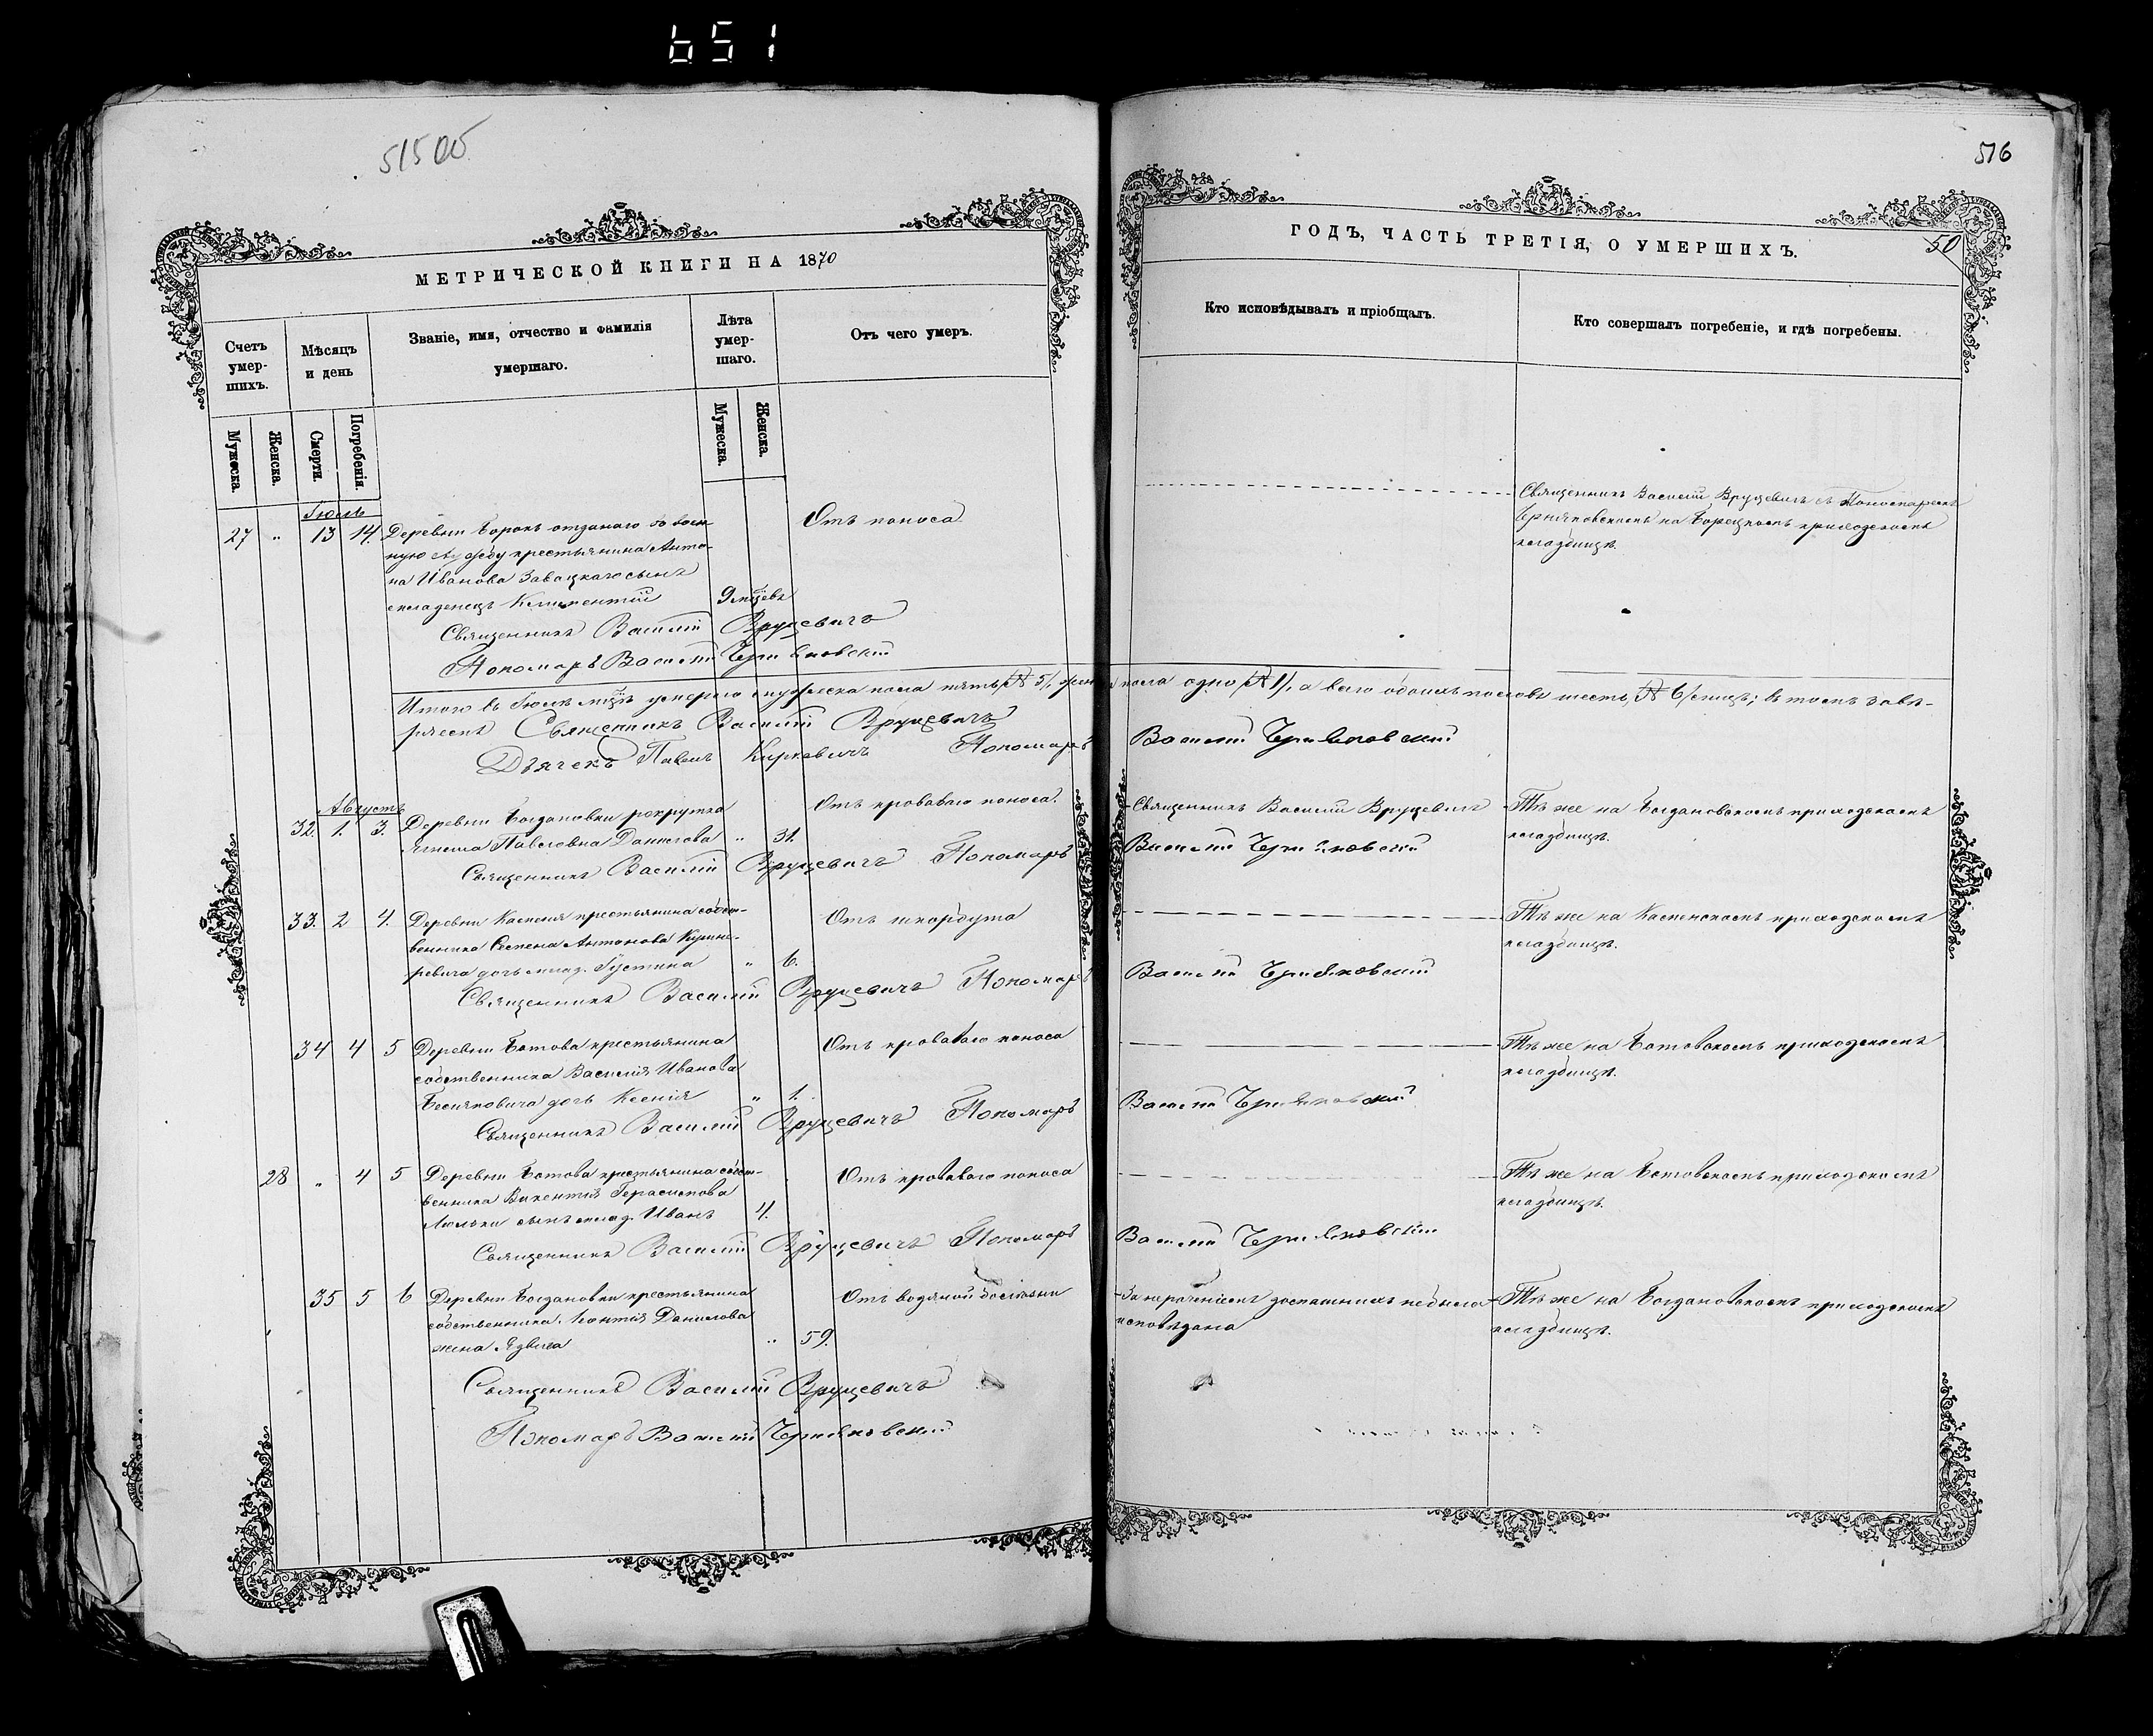 651
515 об
516
МЕТРИЧЕСКОЙ КНИГИ НА 1870
ГОДЪ, ЧАСТЬ ТРЕТІЯ, О УМЕРШИХЪ.
50
Счетъ умер-
шихъ.
Мѣсяцъ
и день
Званіе, имя, отчество и фамилія
умершаго.
Лѣта
умер-
шаго.
Отъ чего умеръ.
Кто исповѣдывалъ и пріобщалъ.
Кто совершалъ погребеніе, и гдѣ погребены.
Мужеска.
Женска.
Смерти.
Погребенія.
Мужеска.
Женска.
Іюль
27 " 13 14. Деревни Борокъ отданаго въ воен-
ную службу крестьянина Анто-
на Иванова Завацкаго сынъ
младенецъ Климентій 9 мѣсцевъ
Отъ поноса
Священникъ Василій Вруцевичъ съ Пономаремъ
Черняковскимъ на Борецкомъ приходскомъ
кладбищѣ.
Священникъ Василій Вруцевичъ
Пономарь Василій Черняковскій
Итого въ Іюлѣ мѣцѣ умерло мужеска пола пять, № 5/, женска пола одно /№ 1/, а всего обоихъ половъ шесть, № 6/ лицъ; въ томъ завѣ-
ряемъ Священникъ Василій Вруцевичъ
Дьячекъ Павелъ Киркевичъ Пономарь Василій Черняковскій
Августъ
32. 1. 3. Деревни Богдановки рекрутка
Павловна Данилова " 31.
Отъ кроваваго поноса.
Священникъ Василій Вруцевичъ
Тѣ же на Богдановскомъ приходскомъ
кладбищѣ.
Священникъ Василій Вруцевичъ Пономарь Василій Черняковскій
33. 2 4. Деревни крестьянина собст-
венника Семена Антонова
ревича дочь млад. Іустина " 6.
Отъ шкорбута
Тѣ же на приходскомъ
кладбищѣ.
Священникъ Василій Вруцевичъ Пономарь Василій Черняковскій
34 4 5 Деревни Ботова крестьянина
собственника Василія Иванова
дочь Ксенія " 1.
Отъ кроваваго поноса
Тѣ же на Ботовскомъ приходскомъ
кладбищѣ.
Священникъ Василій Вруцевичъ Пономарь Василій Черняковскій
28 " 4 5 Деревни Ботова крестьянина собст-
венника Викентія Герасимова
Люльки сынъ млад. Иванъ 4.
Отъ кроваваго поноса
Тѣ же на Ботовскомъ приходскомъ
кладбищѣ.
Священникъ Василій Вруцевичъ Пономарь Василій Черняковскій
35 5 6 Деревни Богдановки крестьянина
собственника Леонтія Данилова
жена Ядвига " 59.
Отъ водяной болѣзни
За нераченіемъ домашнихъ не была
исповѣдана
Тѣ же на Богдановскомъ приходскомъ
кладбищѣ.
Священникъ Василій Вруцевичъ
Пономарь Василій Черняковскій